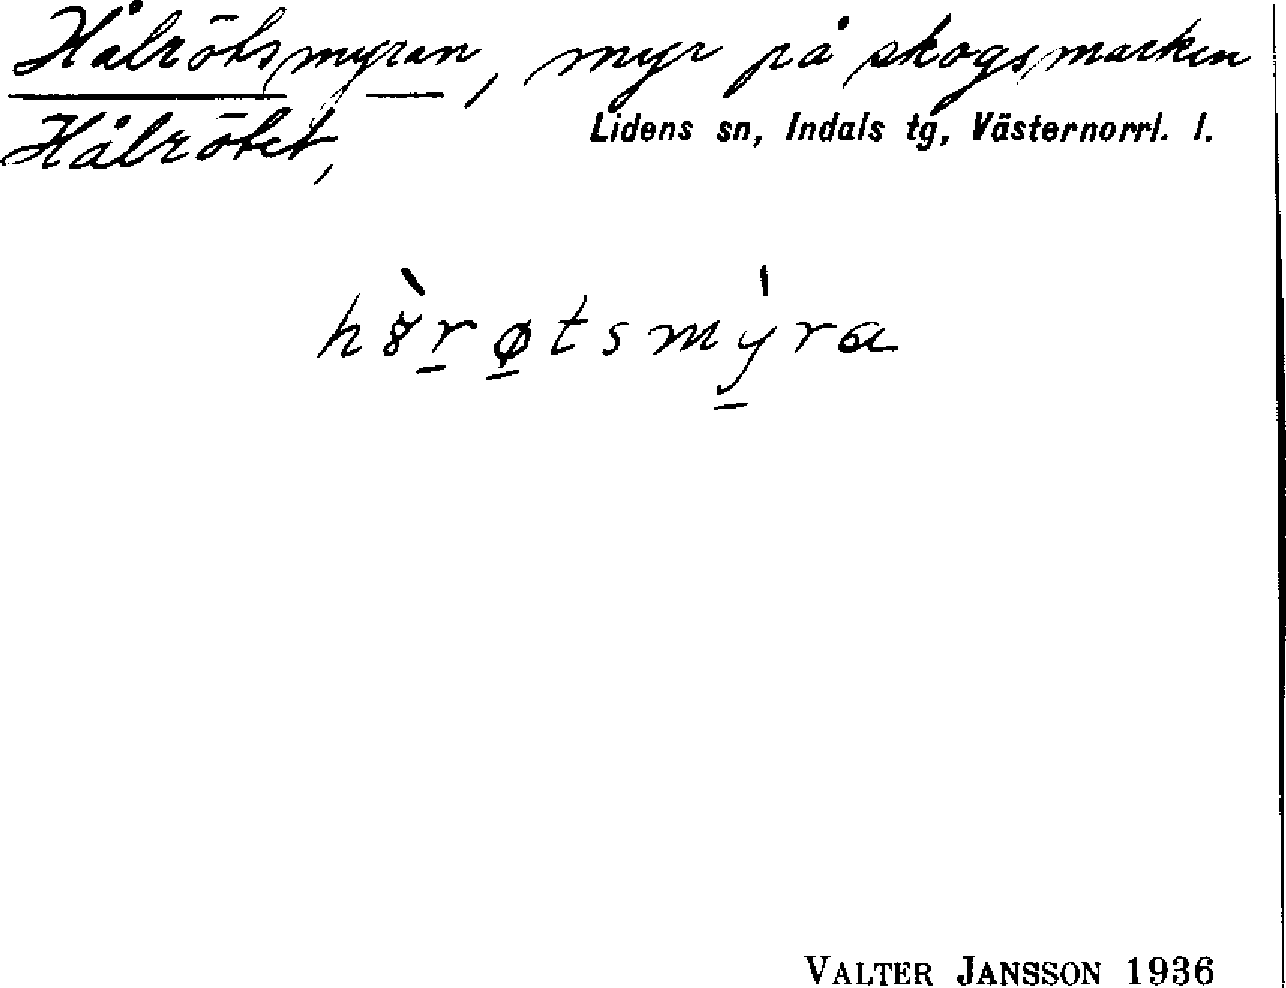 Hålrötsmyran, myr på skogsmarken
Hålrötet,
Lidens sn, Indals tg, Västernorrl. l.
h8̀r̲ø̲tsmy̲̍ra
VALTER JANSSON 1936